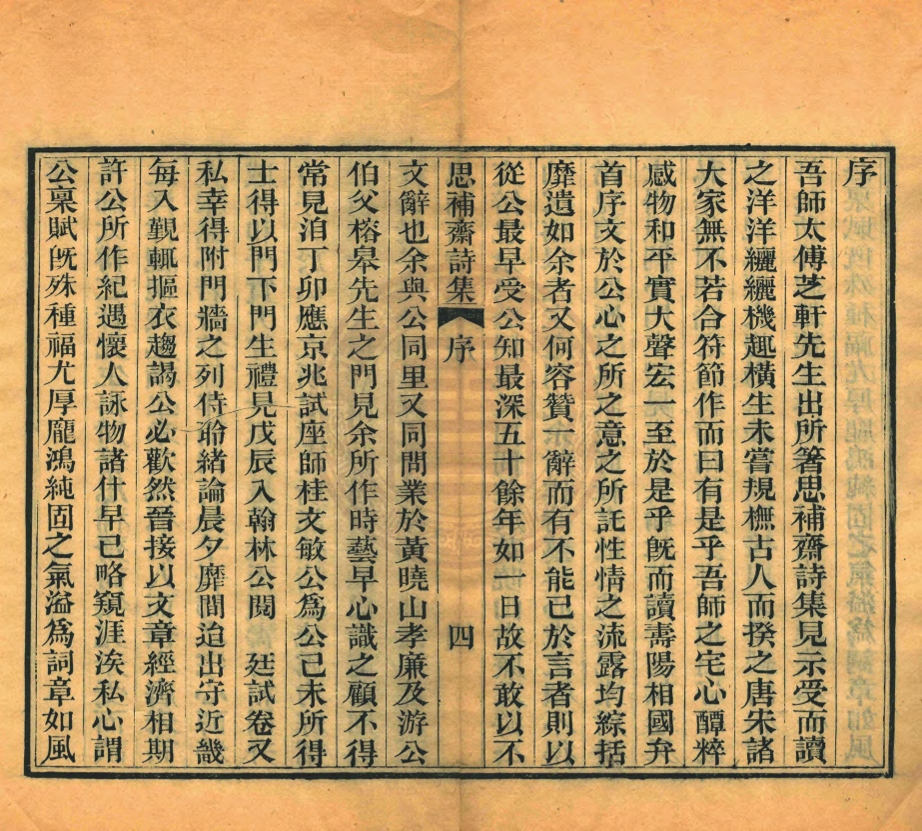 序
吾師太傅芝軒先生出所箸思補齋詩集見示受而讀
之洋洋纚纚機趣橫生未嘗規橅古人而揆之唐宋諸
大家無不若合符節作而曰有是乎吾師之宅心醰粹
感物和平實大聲宏一至於是乎旣而讀壽陽相國弁
首序文於公心之所之意之所託性情之流露均綜括
靡遺如余者又何容贊一辭而有不能已於言者則以
從公最早受公知最深五十餘年如一日故不敢以不
思補齋詩集 序 四
文辭也余與公同里又同問業於黃曉山孝廉及游公
伯父榕皋先生之門見余所作時藝早心識之顧不得
常見洎丁卯應京兆試座師桂文敏公爲公己未所得
士得以門下門生禮見戊辰入翰林公閱 廷試卷又
私幸得附門牆之列侍聆緒論晨夕靡間迨出守近畿
每入覲輒摳衣趨謁公必歡然晉接以文章經濟相期
許公所作紀遇懷人詠物諸什早已略窺涯涘私心謂
公稟賦旣殊種福尤厚龐鴻純固之氣溢爲詞章如風